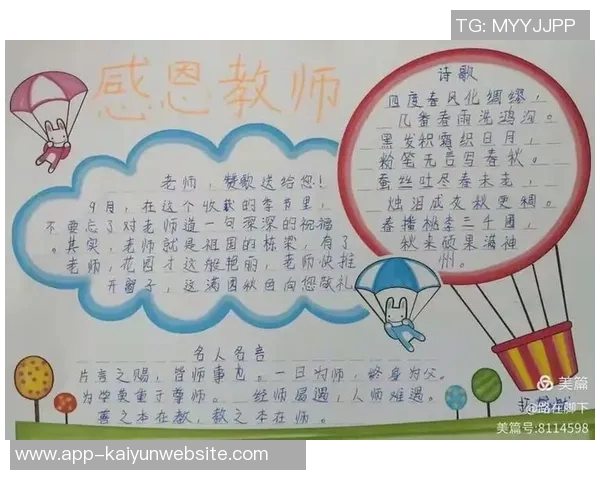 TG: MYYJJPP
感恩教师
老师，赞歌送给您！
9月，在这个收获的季节里，
不要忘了对老师道一句深深的祝福
。其实，老师就是祖国的栋梁，有了
老师，花园才这般艳丽，老师快推
开窗子，这满园秋色向您敬礼
诗歌
四度春风化绸缪，
几番春雨洗鸿沟。
黑发积霜织日月，
粉笔无言写春秋。
蚕丝吐尽春未老，
烛泪成灰秋更稠。
春播桃李三千圃，
秋来硕果满神
州。
名人名言
片言之赐，皆师事也。一日为师，终身为父。
为学莫重于尊师。 经师易遇，人师难遇。
善之本在教，教之本在师。
美篇
@路在脚下
美篇号:8114598
www.app-kaiyunwebsite.com